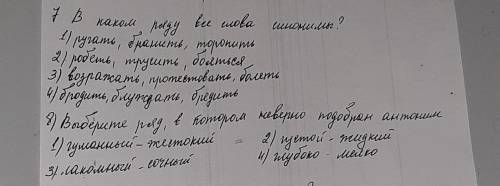 7 В каком ряду все слова синонимы?
1) ругать, бранить, торопить
2) робеть, трусить, бояться
3) возражать, протестовать, болеть
4) бродить, блуждать, бредить
8) Выберите ряд, в котором неверно подобран антоним
1) гуманный - жестокий = 2) густой - жидкий
3) лакомный - сочный 4) глубоко - мелко